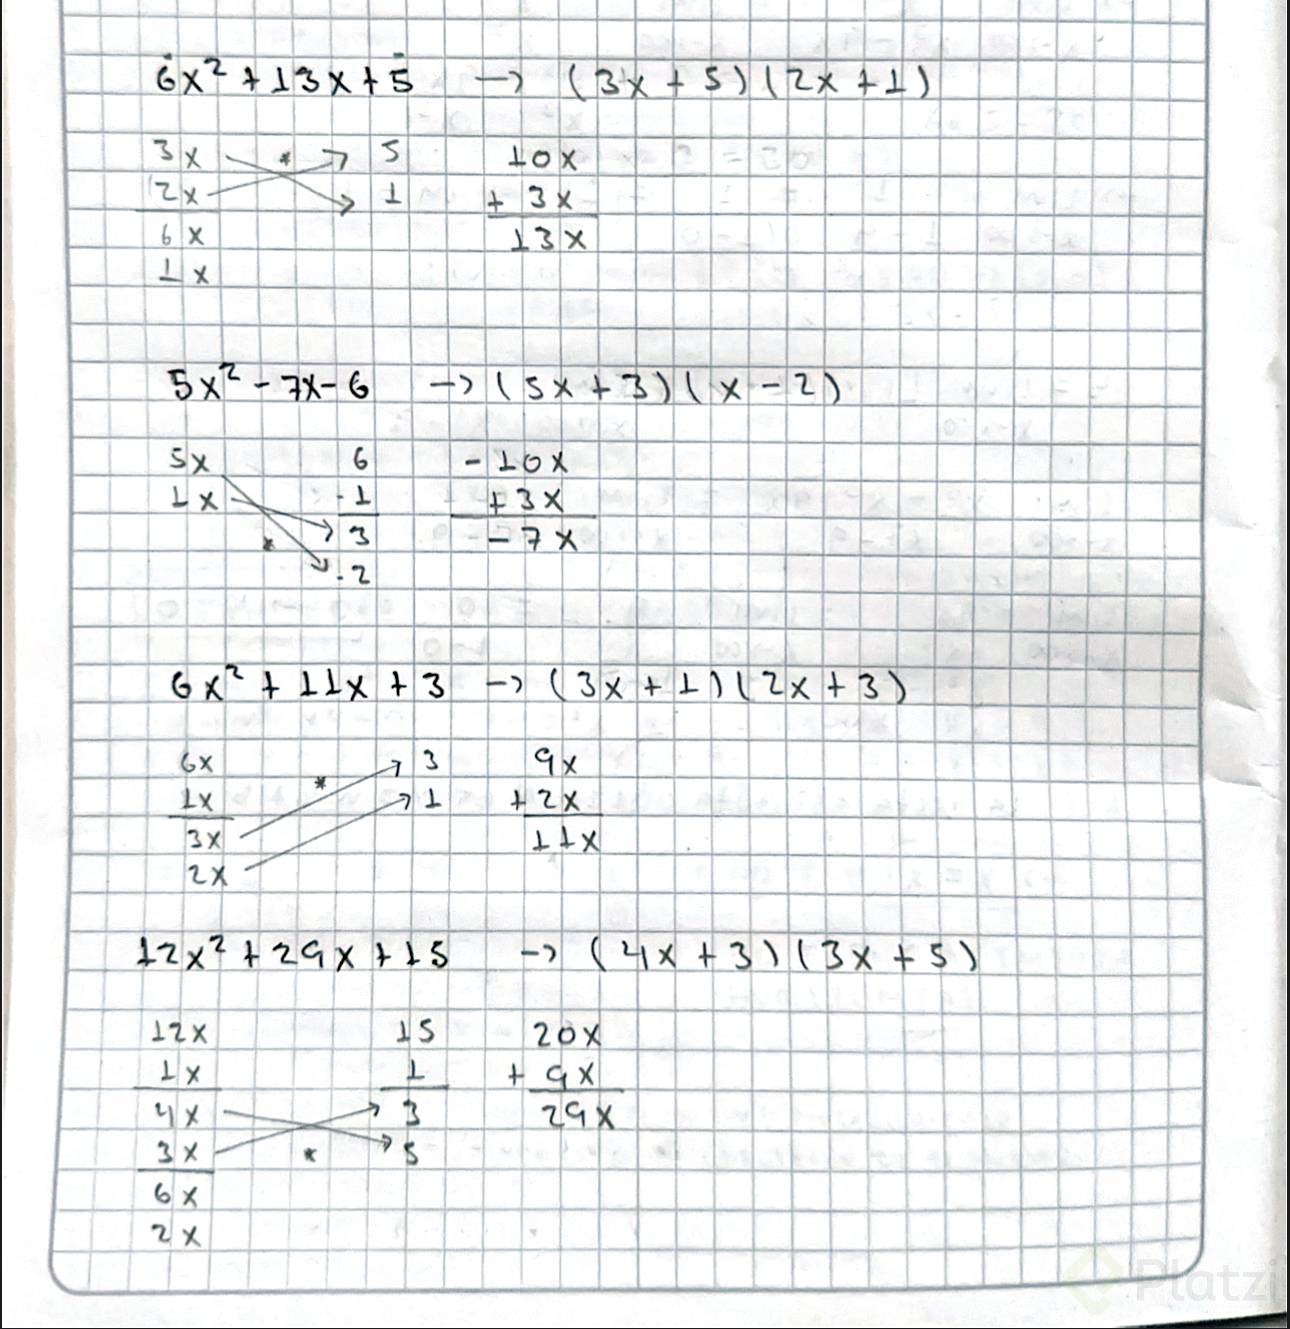 6x² + 13x + 5 → (3x + 5)(2x + 1)
3x * 5 10x
2x 1 + 3x
6x 13x
1x
5x² - 7x - 6 → (5x + 3)(x - 2)
5x 6 - 10x
1x -1 + 3x
* 3 - 7x
-2
6x² + 11x + 3 → (3x + 1)(2x + 3)
6x * 3 9x
1x 1 + 2x
3x 11x
2x
12x² + 29x + 15 → (4x + 3)(3x + 5)
12x 15 20x
1x 1 + 9x
4x 3 29x
3x * 5
6x
2x
Platzi